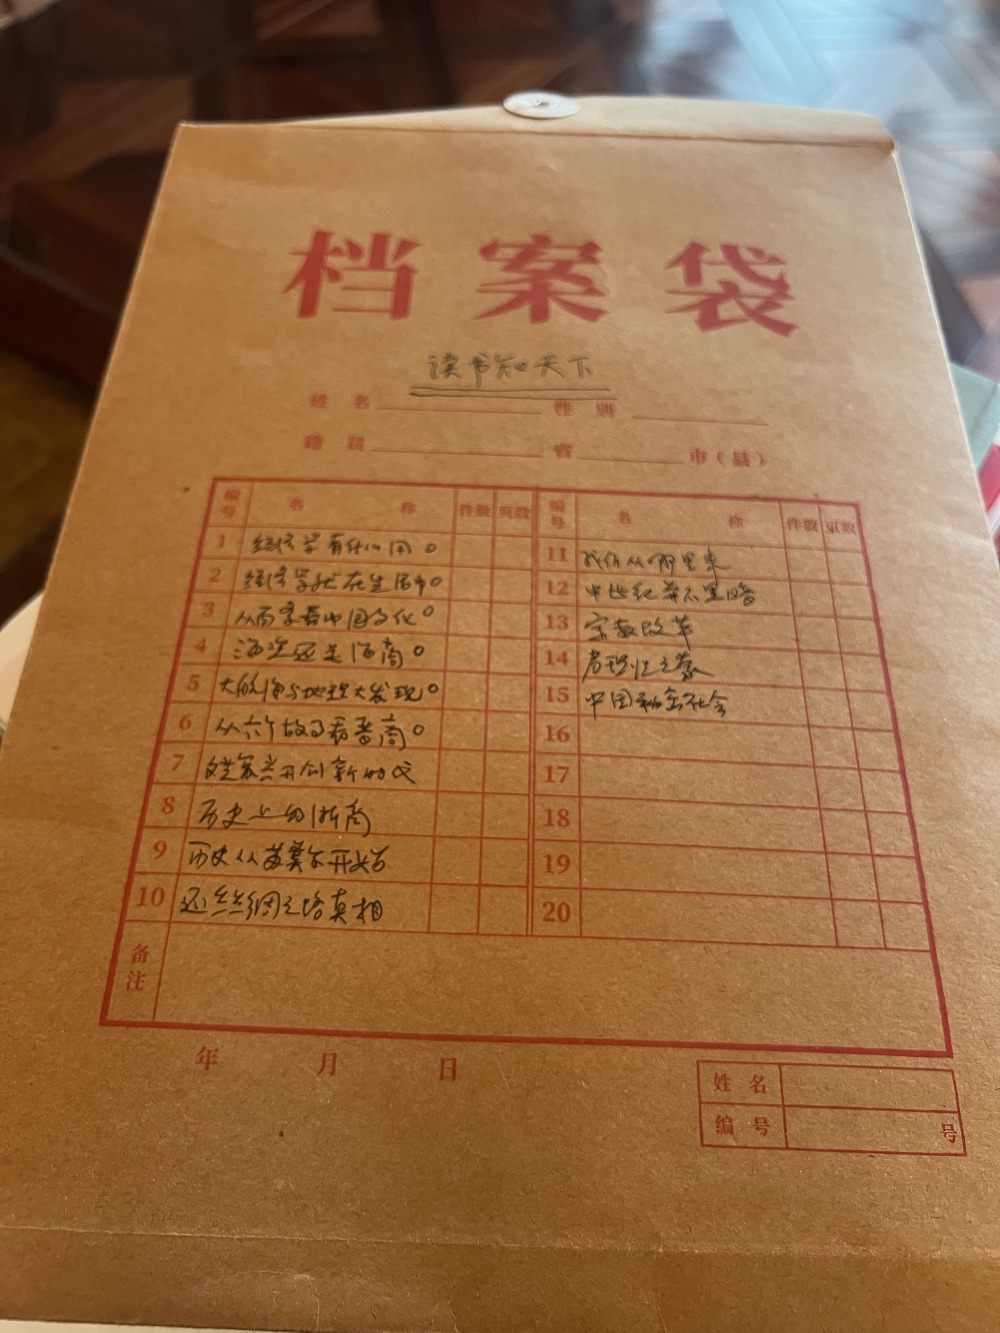 档案袋
读书知天下
姓 名 性 别
籍 贯 省 市（县）
编号 名 称 件数 页数 编号 名 称 件数 页数
1 经济学有什么用
2 经济学就在生活中
3 从商学看中国文化
4 海盗还是海商
5 大航海与地理大发现
6 从六个故事看晋商
7 文艺复兴开创新时代
8 历史上的浙商
9 历史从苏美尔开始
10 还丝绸之路真相
11 我们从哪里来
12 中世纪并不黑暗
13 宗教改革
14 启蒙
15 中国秘密社会
16
17
18
19
20
备注
年 月 日
姓 名
编 号 号